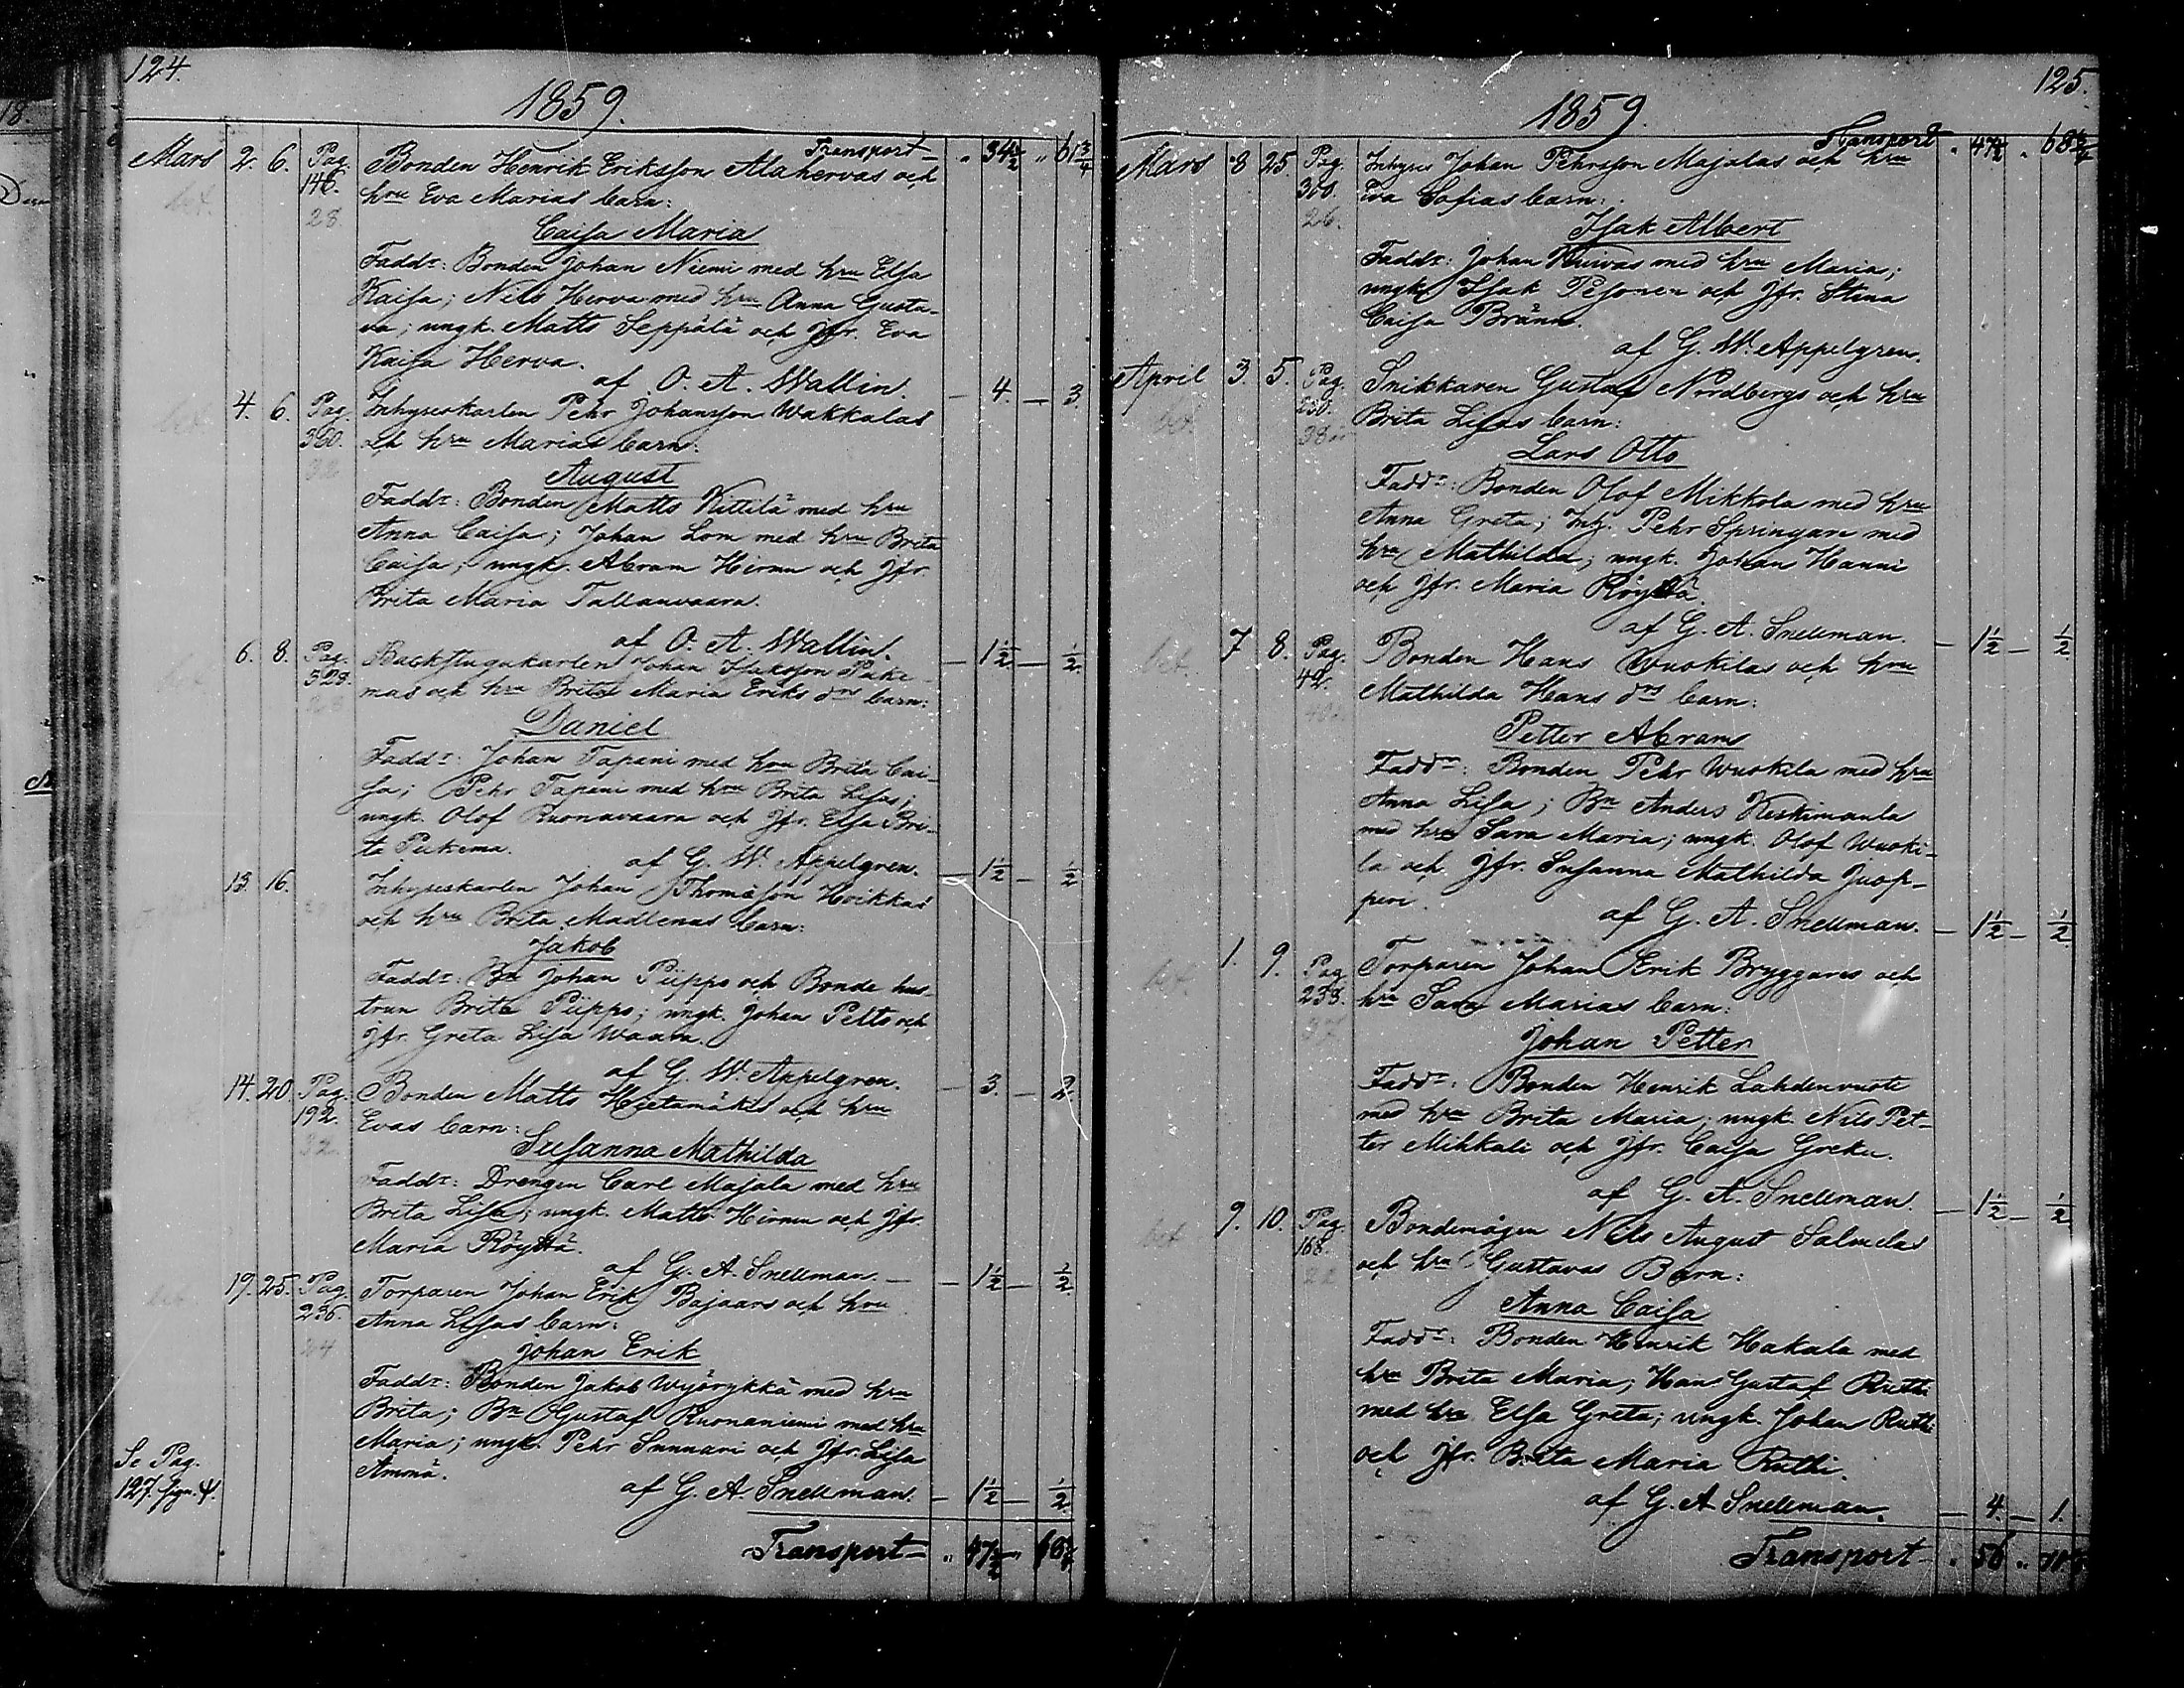 124.
1859.
Transport — „ 34½ „ 61¾
Mars 2. 6. Pag. 148. Bonden Henrik Eriksson Alahervas och
bet. 28. hru Eva Marias barn:
Caisa Maria
Faddr: Bonden Johan Niemi med hru Elsa
Kaisa; Nils Herva med hru Anna Gusta-
va; ungk. Matts Seppälä och Jfr. Eva
Kaisa Herva.
af O. A. Wallin. — 4. — 3.
bet. 4. 6. Pag. 360. Inhyseskarlen Pehr Johansson Wakkalas
32 och hru Marias barn:
August
Faddr: Bonden Matts Kittilä med hru
Anna Caisa; Johan Lom med hru Brita
Caisa; ungk. Abram Hirmu och Jfr.
Brita Maria Tallauvaara.
af O. A. Wallin. — 1½ — ½
6. 8. Pag. 329. Backstugukarlen Johan Isaksson Puke-
mas och hru Brita Maria Eriks drs barn:
Daniel
Faddr: Johan Tapani med hru Brita Cai-
sa; Pehr Tapani med hru Brita Lisa;
ungk. Olof Ruonavaara och Jfr. Elsa Bri-
ta Pukema.
af G. W. Appelgren. — 1½ — ½
13. 16. Inhyseskarlen Johan Thomasson Hoikkas
och hru Brita Madlenas barn:
Jakob
Faddr: Bn Johan Piippo och Bonde hus-
trun Brita Piippo; ungk. Johan Pelto och
Jfr. Greta Lisa Waara.
af G. W. Appelgren. — 3. — 2.
14. 20. Pag. 192. Bonden Matts Hietamäkis och hru
32 Evas barn:
Susanna Mathilda
Faddr: Drengen Carl Majala med hru
Brita Lisa; ungk. Matts Hirmu och Jfr.
Maria Röyttä.
af G. A. Snellman. — 1½ — ½
bet. 19. 25. Pag. 236. Torparen Johan Erik Bajaars och hru
24 Anna Lisas barn:
Johan Erik
Faddr: Bonden Jakob Wyörykkä med hru
Brita; Bn Gustaf Ruonaniemi med hru
Maria; ungk. Pehr Sunnari och Jfr. Lisa
Ammä.
Se Pag.
127.
af G. A. Snellman. — 1½ — ½
Transport — „ 47½ „ 68¾
125.
1859.
Transport „ 47½ „ 68¾
Mars 8 25. Pag. 300. Inhyses Johan Pehrsson Majalas och hru
26. Eva Sofias barn:
Isak Albert
Faddr: Johan Kuivas med hru Maria;
ungk. Isak Pesonen och Jfr. Stina
Caisa Bränn.
af G. W. Appelgren.
April 3. 5. Pag. 230. Snikkaren Gustaf Nordbergs och hru
bet. Brita Lisas barn:
Lars Otto
Faddr: Bonden Olof Mikkola med hru
Anna Greta; Inh. Pehr Springare med
hru Mathilda; ungk. Johan Hanni
och Jfr. Maria Röyttä
af G. A. Snellman. — 1½ — ½
bet. 7 8. Pag. 42. Bonden Hans Wuokilas och hru
Mathilda Hans drs barn:
Petter Abram
Faddr: Bonden Pehr Wuokila med hru
Anna Lisa; Bn Anders Keskimaula
med hru Sara Maria; ungk. Olof Wuoki-
la och Jfr. Susanna Mathilda Juop-
peri.
af G. A. Snellman. — 1½ — ½
bet. 1. 9. Pag. 238. Torparen Johan Erik Bryggares och
37 hru Sara Marias barn:
Johan Petter
Faddr: Bonden Henrik Lahdenvuote
med hru Brita Maria; ungk. Nils Pet-
ter Mikkali och Jfr. Caisa Greku.
af G. A. Snellman. — 1½ — ½
bet 9. 10. Pag. 168. Bondemågen Nils August Salmelas
22 och hru Gustavas Barn:
Anna Caisa
Faddr: Bonden Henrik Hakala med
hru Brita Maria; Hans Gustaf Ruthi
med hru Elsa Greta; ungk. Johan Ruthi
och Jfr. Brita Maria Ruthi.
af G. A. Snellman. — 4. — 1.
Transport — „ 56 „